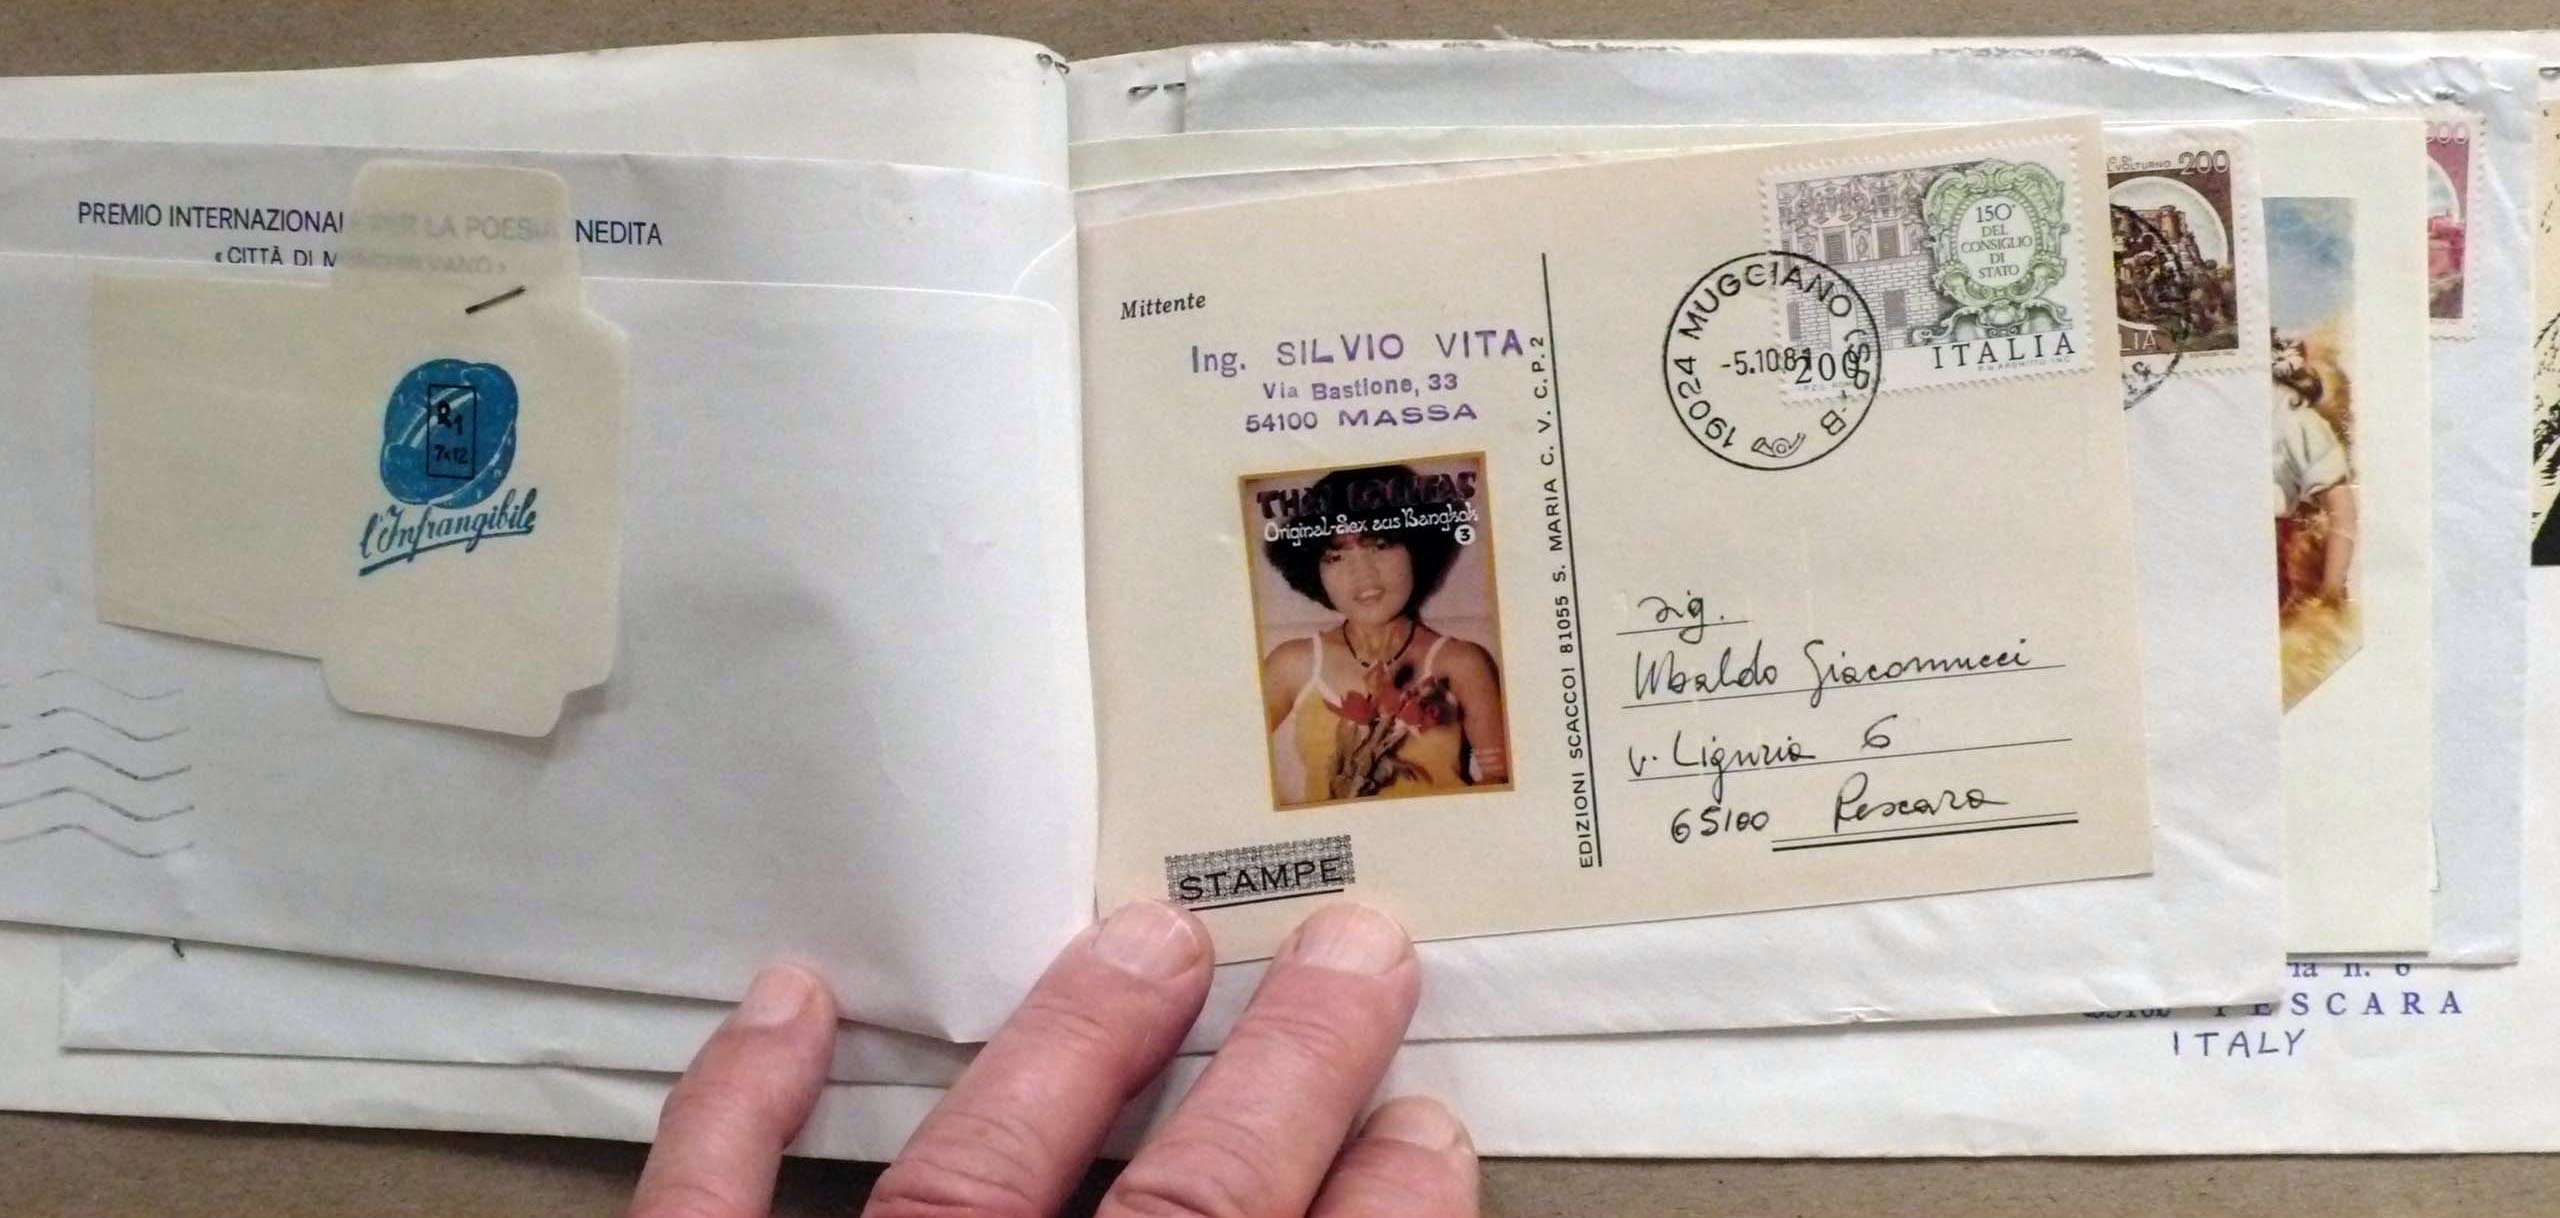 PREMIO INTERNAZIONALE PER LA POESIA INEDITA
« CITTÀ DI M
R1
7x12
l'Infrangibile
Mittente
Ing. SILVIO VITA
Via Bastione, 33
54100 MASSA
THAI LOLITAS
Original-Sex aus Bangkok
3
STAMPE
EDIZIONI SCACCOI 81055 S. MARIA C. V. C.P. 2
150°
DEL
CONSIGLIO
DI
STATO
200
ITALIA
19024 MUGGIANO (SP) - B
-5.10.81
sig.
Ubaldo Giacomucci
v. Liguria 6
65100 Pescara
VOLTURNO 200
LIA
ria n. 6
PESCARA
ITALY